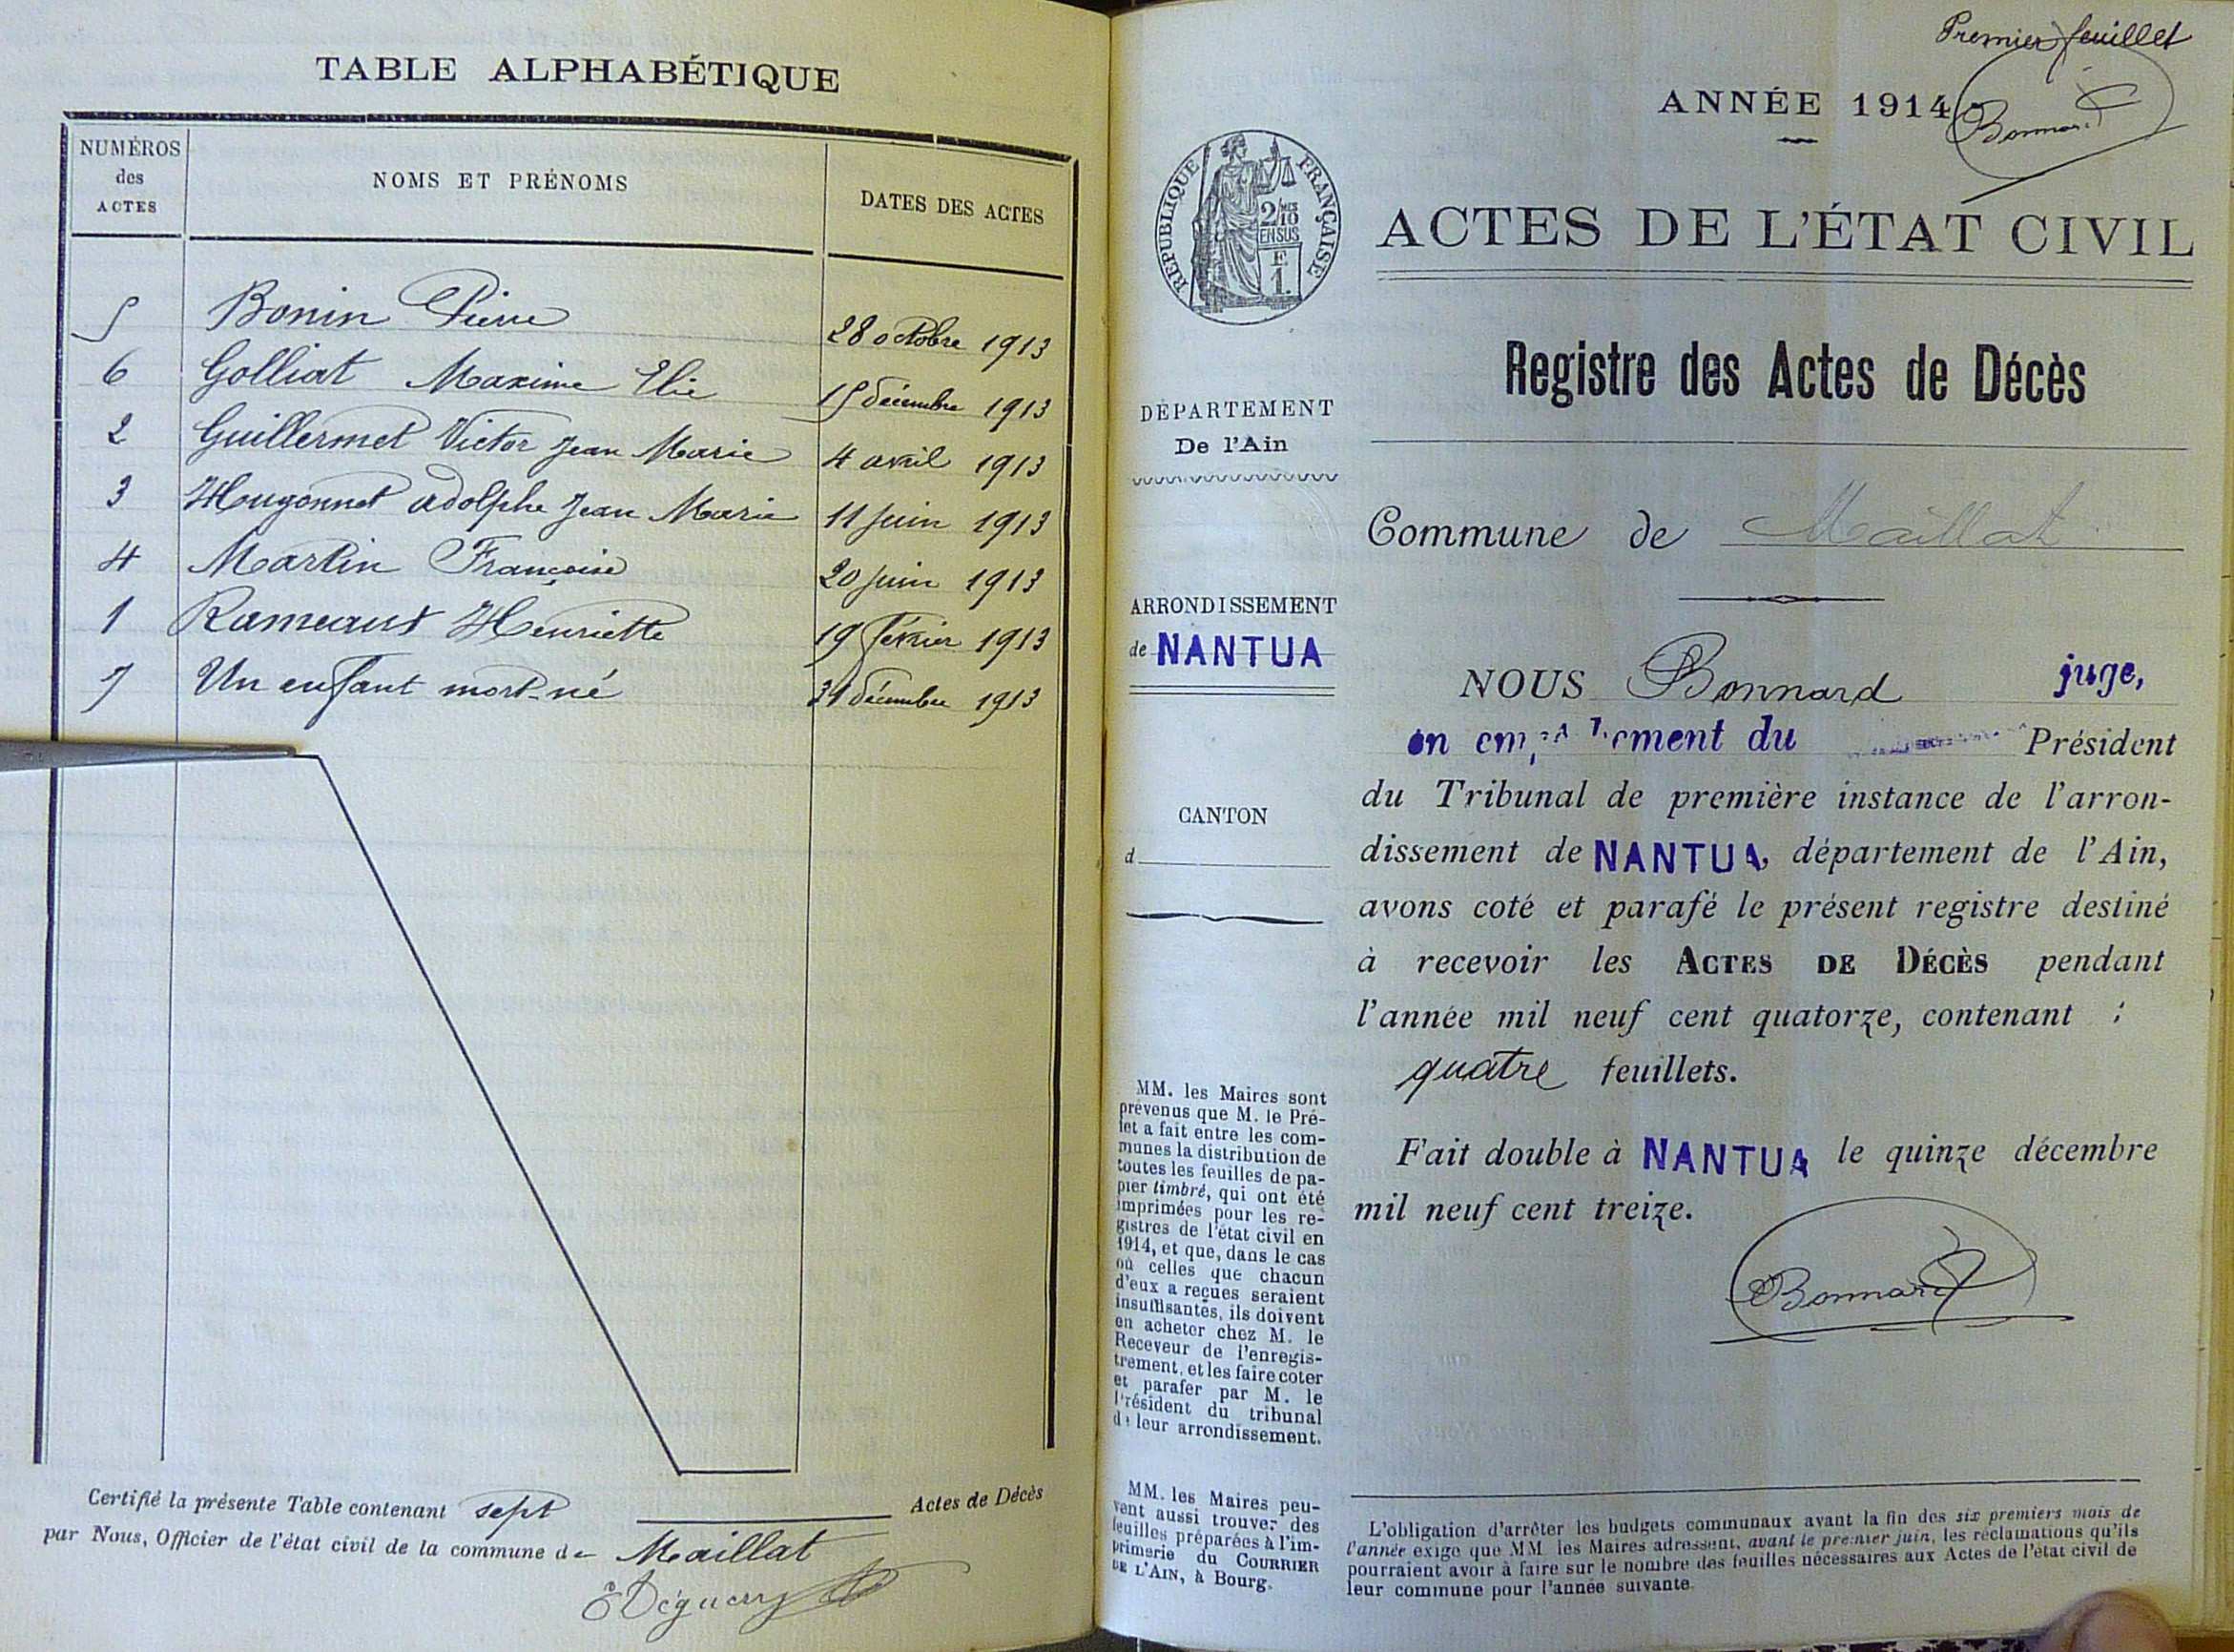 TABLE ALPHABÉTIQUE
NUMÉROS des ACTES
NOMS ET PRÉNOMS
DATES DES ACTES
5 Bonin Pierre 28 octobre 1913
6 Golliat Maxime Elie 15 décembre 1913
2 Guillermet Victor Jean Marie 4 avril 1913
3 Hugonnet Adolphe Jean Marie 11 juin 1913
4 Martin Françoise 20 juin 1913
1 Rameaux Henriette 19 février 1913
7 Un enfant mort-né 31 décembre 1913
Certifié la présente Table contenant sept Actes de Décès
par Nous, Officier de l'état civil de la commune de Maillat
Premier feuillet
ANNÉE 1914
Bonnard
RÉPUBLIQUE FRANÇAISE
2/10
EN SUS
E
1.
ACTES DE L'ÉTAT CIVIL
Registre des Actes de Décès
DÉPARTEMENT
De l'Ain
Commune de Maillat
ARRONDISSEMENT
de NANTUA
CANTON
d
NOUS Bonnard juge,
en empêchement du Président
du Tribunal de première instance de l'arron-
dissement de NANTUA, département de l'Ain,
avons coté et parafé le présent registre destiné
à recevoir les ACTES DE DÉCÈS pendant
l'année mil neuf cent quatorze, contenant :
quatre feuillets.
Fait double à NANTUA le quinze décembre
mil neuf cent treize.
Bonnard
MM. les Maires sont
prévenus que M. le Pré-
fet a fait entre les com-
munes la distribution de
toutes les feuilles de pa-
pier timbré, qui ont été
imprimées pour les re-
gistres de l'état civil en
1914, et que, dans le cas
où celles que chacun
d'eux a reçues seraient
insuffisantes, ils doivent
en acheter chez M. le
Receveur de l'enregis-
trement, et les faire coter
et parafer par M. le
Président du tribunal
de leur arrondissement.
MM. les Maires peu-
vent aussi trouver des
feuilles préparées à l'im-
primerie du COURRIER
DE L'AIN, à Bourg.
L'obligation d'arrêter les budgets communaux avant la fin des six premiers mois de
l'année exige que MM. les Maires adressent, avant le premier juin, les réclamations qu'ils
pourraient avoir à faire sur le nombre des feuilles nécessaires aux Actes de l'état civil de
leur commune pour l'année suivante.